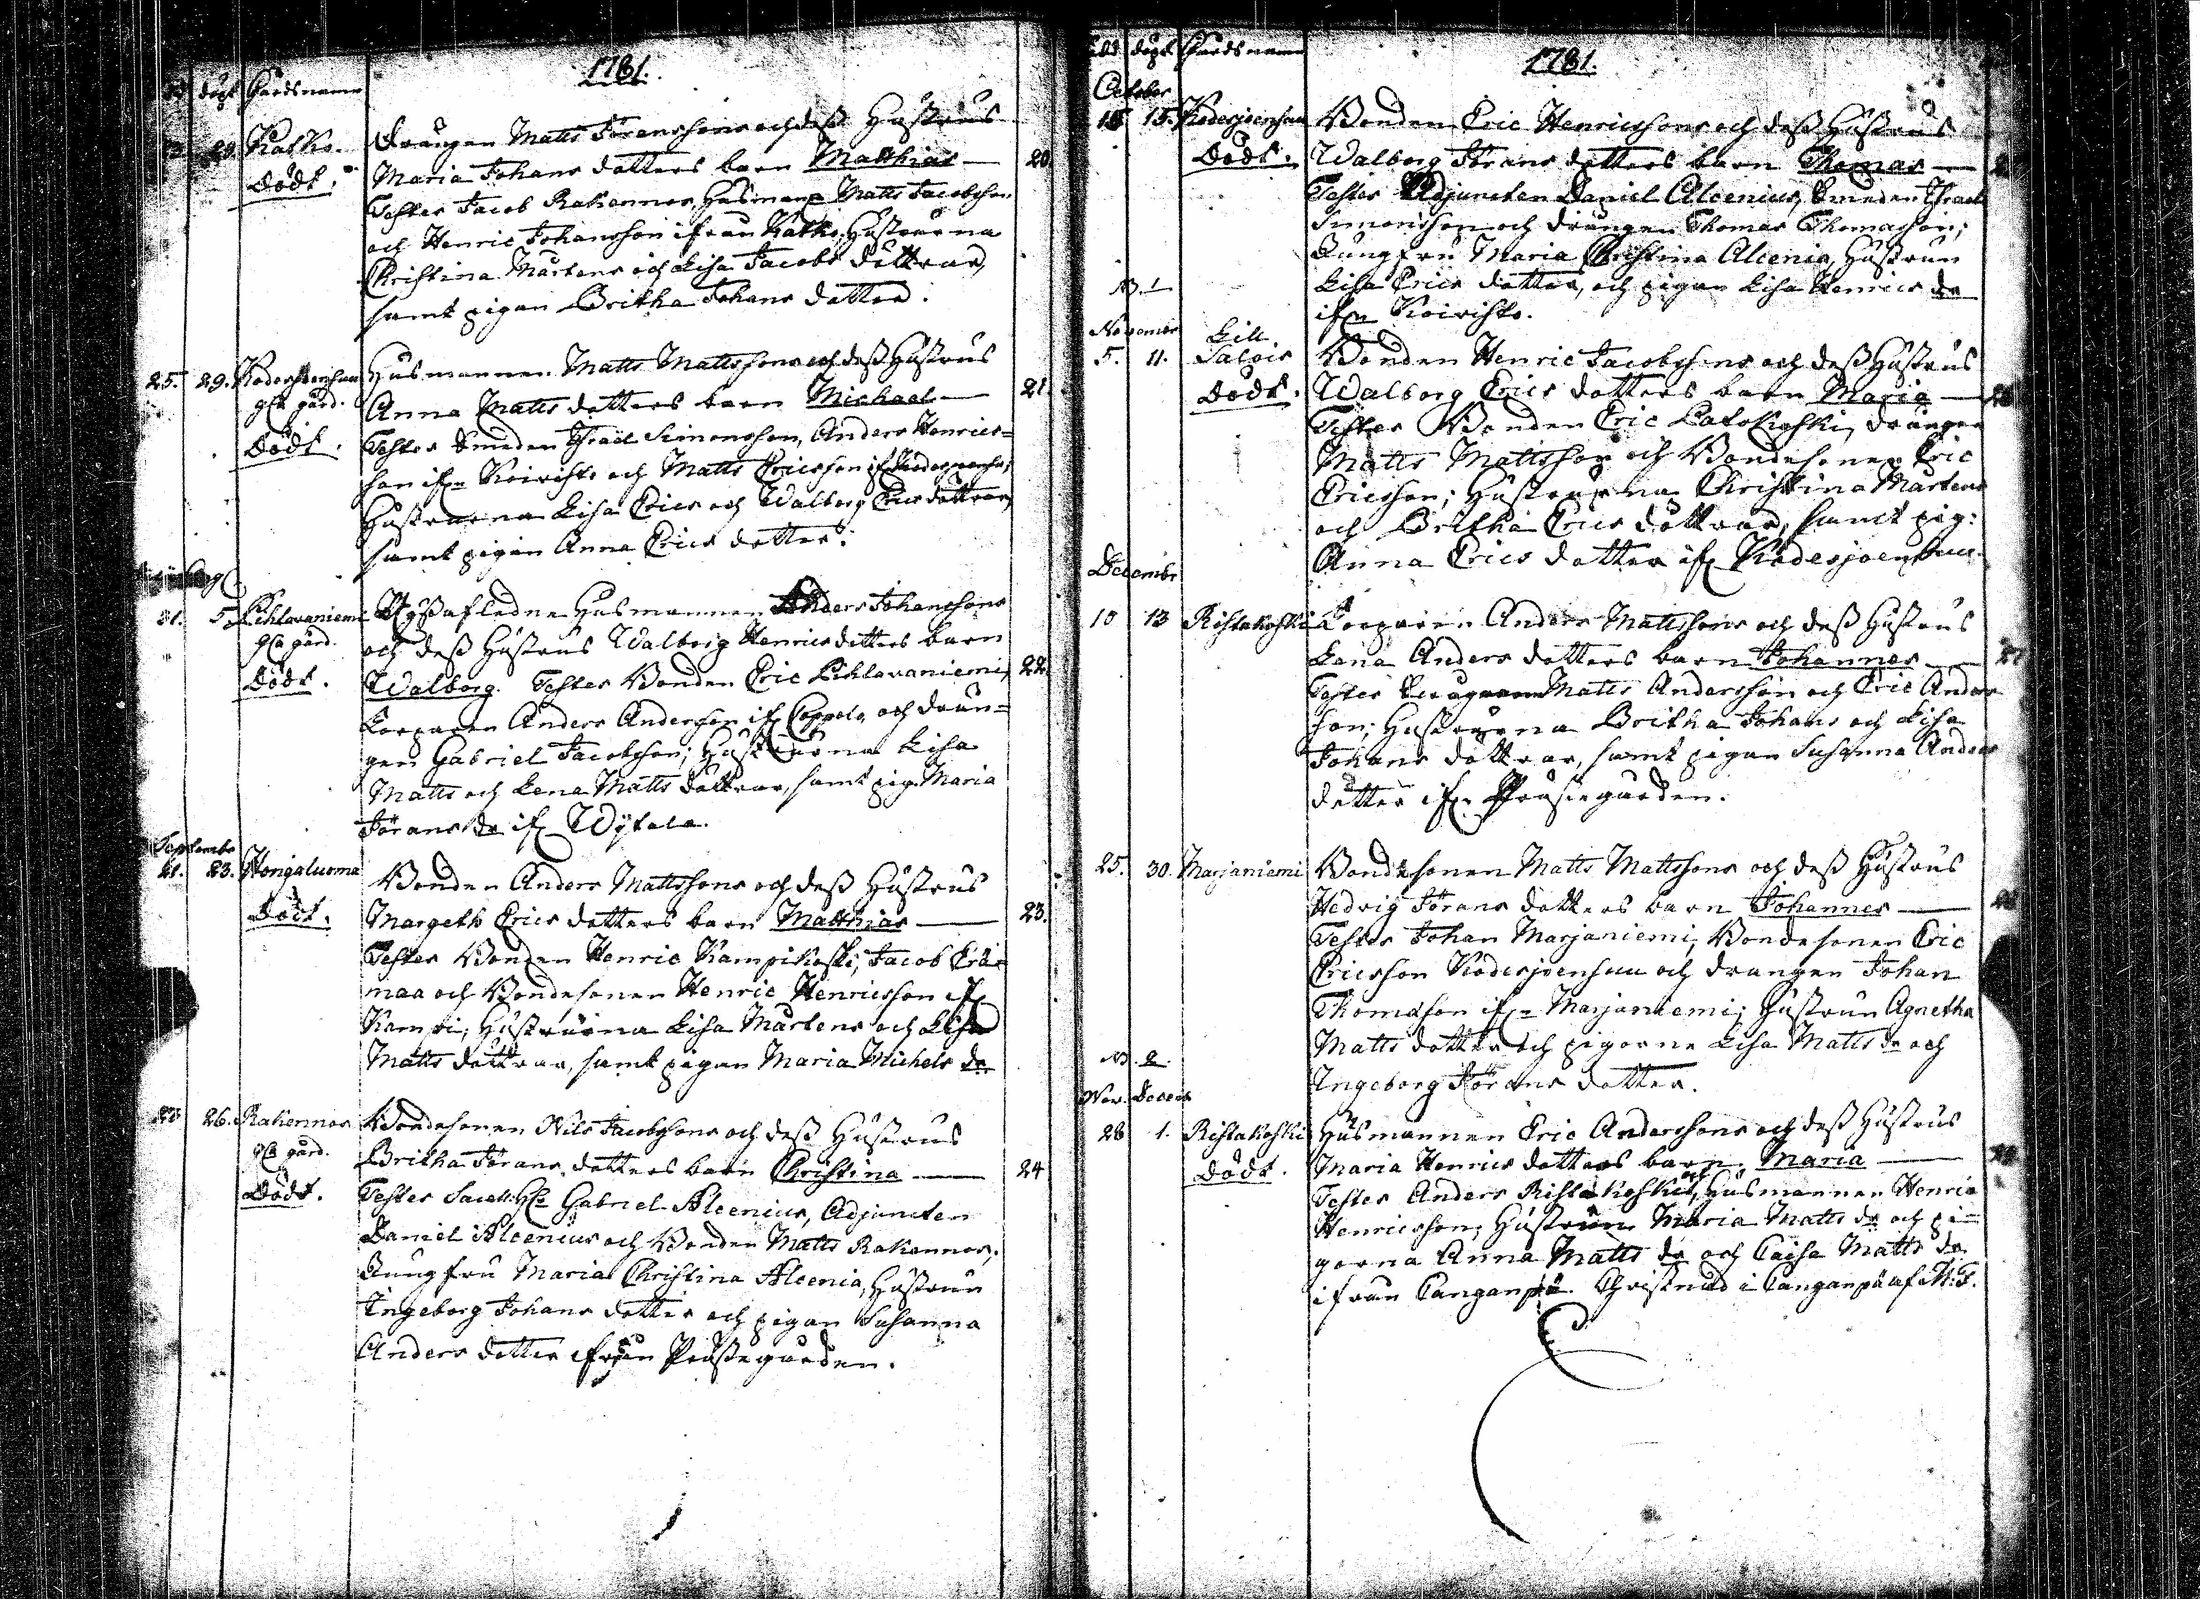 1781.
döpt Gårds namn
28. Katko. Drängen Matts Jöranssons och dess Hustrus
Dödt. Maria Johans dotters barn Matthias — 20.
Testes Jacob Rakennos, Husman Matts Jacobsson
och Henric Johansson ifrån Katko, Hustrurna
Christina Mårtens och Lisa Jacobs döttrar,
samt pigan Britha Johans dotter.
25. 29. Kodesjoensuu Husmannen Matts Mattssons och dess Hustrus
gård. Anna Matts dotters barn Michael — 21
Dödt. Testes Smeden Israel Simonsson, Anders Henrics=
son ifrn Koivisto och Matts Ericsson if Kodesjoensu;
Hustrurna Lisa Erics och Walborg Erics döttrar,
samt pigan Anna Erics dotter.
31. 5. Pihlavaniemi Afledne Husmannen Anders Johanssons
gård. och dess Hustrus Walborg Henrics dotters barn
Dödt. Walborg. Testes Bonden Eric Pihlavaniemi, 22.
Torparen Anders Andersson if Coppelo, och drän=
gen Gabriel Jacobsson; Hustrurna Lisa
Matts och Lena Matts döttrar, samt pig. Maria
Jörans dr if Wytala.
September
21. 23. Hongaluoma Bonden Anders Mattssons och dess Hustrus
Dödt. Margeth Erics dotters barn Matthias — 23.
Testes Bonden Henric Kampikoski, Jacob Erä=
maa och Bondesonen Henric Henricsson if
Kampi; Hustrurna Lisa Mårtens och Lisa
Matts döttrar, samt pigan Maria Michels dr
26. Rakennos Bondesonen Nils Jacobssons och dess Hustrus
gård. Britha Jörans dotters barn Christina — 24
Dödt. Testes Gabriel Alcenius, Adjuncten
Daniel Alcenius och Bonden Matts Rakennos;
Jungfru Maria Christina Alcenia, Hustrun
Ingeborg Johans dotter och pigan Susanna
Anders dotter ifrån Prästegården.
döpt Gårds namn 1781.
October
15. Kodesjoensuu Bonden Eric Henricssons och dess Hustrus
Dödt. Walborg Jörans dotters barn Thomas —
Testes Adjuncten Daniel Alcenius, Smeden Israel
Simonsson och drängen Thomas Thomasson;
Jungfru Maria Christina Alcenia, Hustrun
N. 1 Lisa Erics dotter, och pigan Lisa Henrics dr
ifrn Koivisto.
November Lill
5. 11. Salois Bonden Henric Jacobssons och dess Hustrus
Dödt. Walborg Erics dotters barn Maria —
Testes Bonden Eric Latokoski, drängen
Matts Mattsson och Bondesonen Eric
Ericsson; Hustrurna Christina Mårtens
och Britha Erics döttrar, samt pig:
Anna Erics dotter if Kodesjoensuu.
December
10 13 Ristakoski Torparen Anders Mattssons och dess Hustrus
Lena Anders dotters barn Johannes — 27
Testes Matts Andersson och Eric Anders
son; Hustrurna Britha Johans och Lisa
Johans döttrar, samt pigan Susanna Anders
dotter ifrn Prästegården.
25. 30. Marjaniemi Bondesonen Matts Mattssons och dess Hustrus
Hedvig Jörans dotters barn Johannes —
Testes Johan Marjaniemi, Bondesonen Eric
Ericsson Kodesjoensuu och drängen Johan
Thomasson ifrn Marjaniemi; Hustrun Agnetha
Matts dotter och pigorne Lisa Matts dr och
N. 2. Ingeborg Jörans dotter.
Nov. Decem
28 1. Ristakoski Husmannen Eric Anderssons och dess Hustrus
Dödt. Maria Henrics dotters barn Maria —
Testes Anders Ristakoski och Husmannen Henric
Henricsson; Hustrun Maria Matts dr och pi=
gorna Anna Matts dr och Caisa Matts dr
ifrån Canganpä. Christnad i Canganpä af